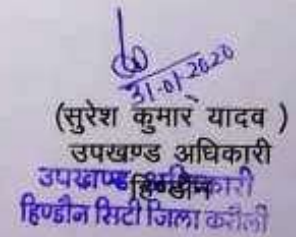 31-01-2020
(सुरेश कुमार यादव )
उपखण्ड अधिकारी
हिण्डौन
उपखण्ड अधिकारी
हिण्डौन सिटी जिला करौली